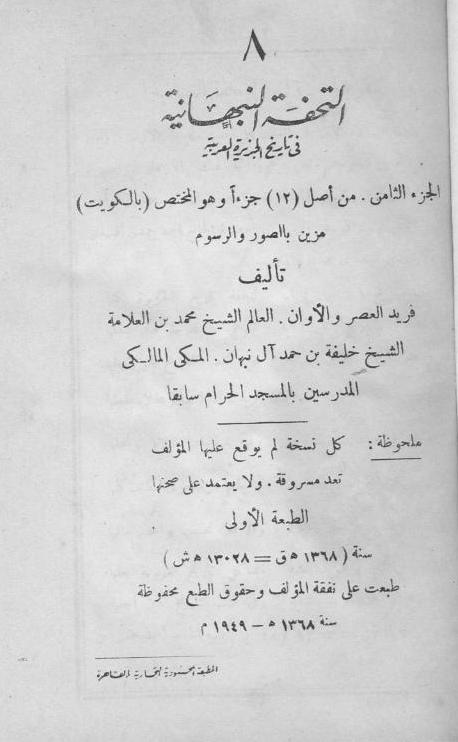 ٨
التحفة النبهانية
فى تاريخ الجزيرة العربية
الجزء الثامن . من أصل (١٢) جزءاً وهو المختص (بالكويت)
مزين بالصور والرسوم
تأليف
فريد العصر والأوان . العالم الشيخ محمد بن العلامة
الشيخ خليفة بن حمد آل نبهان . المكى المالكى
المدرسين بالمسجد الحرام سابقا
ملحوظة : كل نسخة لم يوقع عليها المؤلف
تعد مسروقة . ولا يعتمد على صحتها
الطبعة الأولى
سنة ( ١٣٦٨ ه ق = ١٣٠٢٨ ه ش )
طبعت على نفقة المؤلف وحقوق الطبع محفوظة
سنة ١٣٦٨ ه – ١٩٤٩ م
المطبعة المحمودية التجارية بالقاهرة